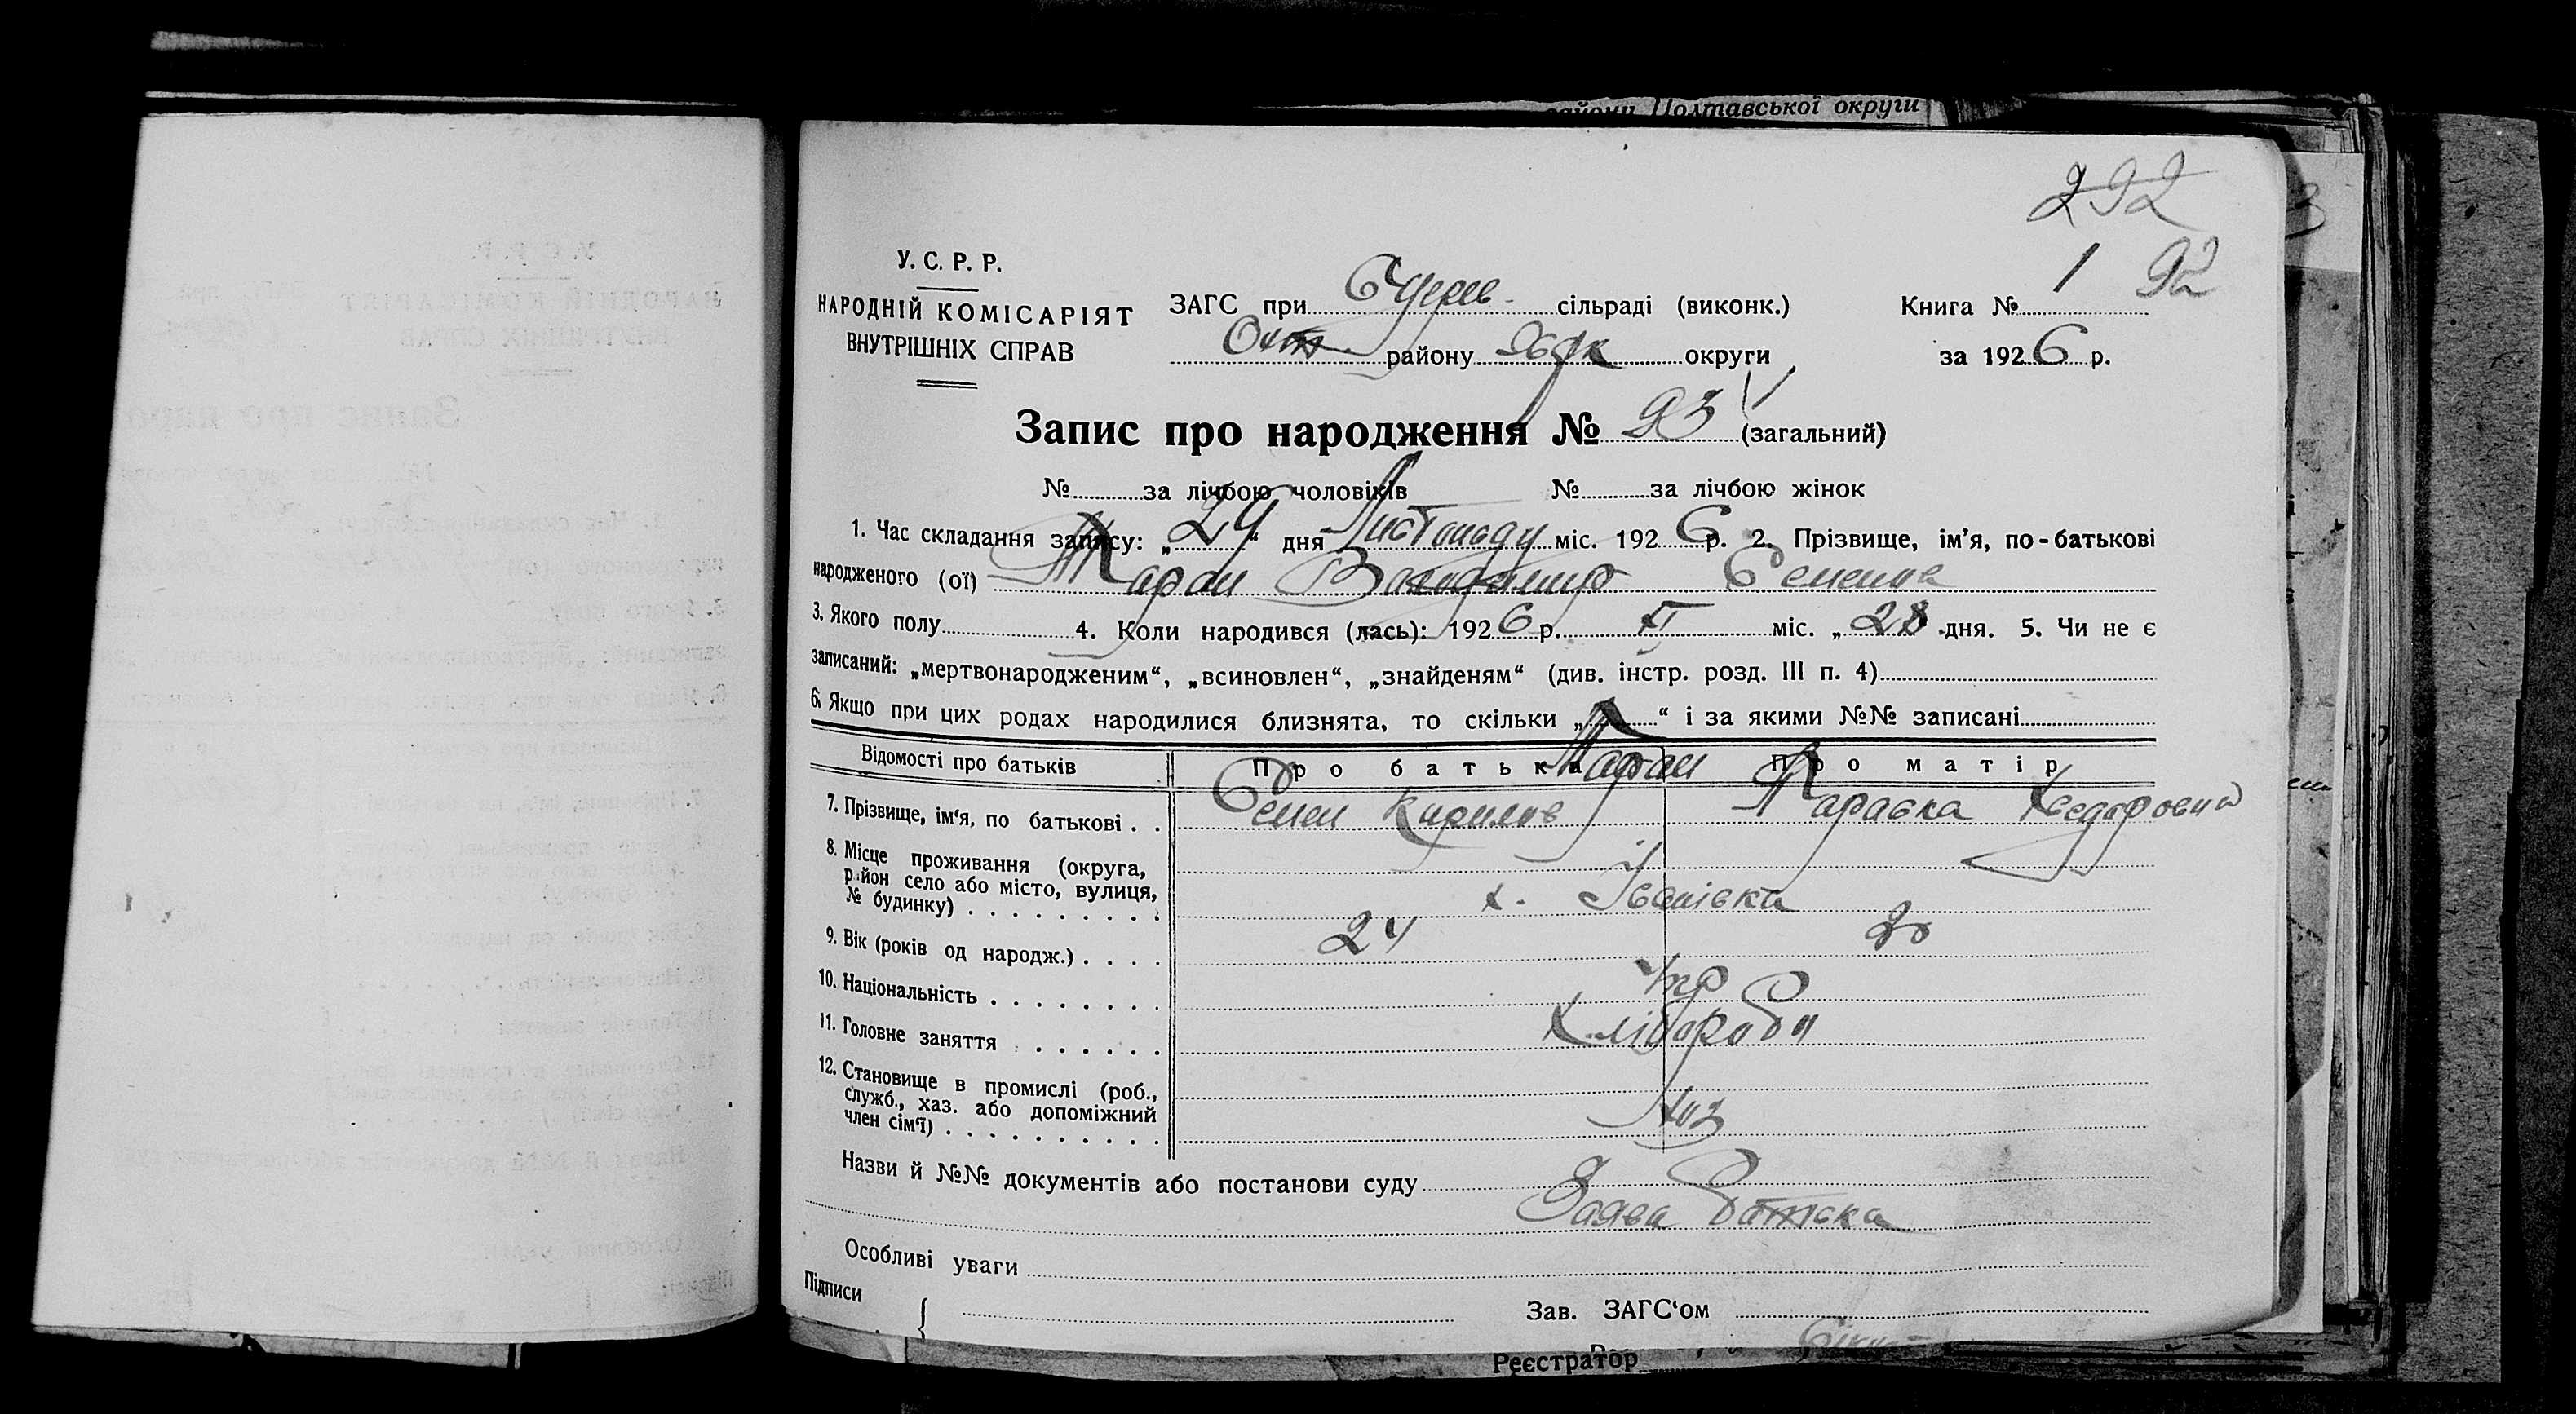 Полтавської округи
292
У. С. Р. Р.
НАРОДНІЙ КОМІСАРІЯТ
ВНУТРІШНІХ СПРАВ
ЗАГС при сільраді (виконк.)
району округи
Книга № 1 92
за 1926 р.
Запис про народження № 93 (загальний)
№ за лічбою чоловіків № за лічбою жінок
1. Час складання запису: „29“ дня Листопаду міс. 1926 р. 2. Прізвище, ім’я, по-батькові
народженого (ої) Таран Володимир Семенов
3. Якого полу 4. Коли народився (лась): 1926 р. XI міс. „28 дня. 5. Чи не є
записаний: „мертвонародженим“, „всиновлен“, „знайденям“ (див. інстр. розд. III п. 4)
6. Якщо при цих родах народилися близнята, то скільки „ “ і за якими №№ записані
Відомості про батьків Про батька Про матір
Таран
7. Прізвище, ім‘я, по батькові . . Семен Кирилов Параска
8. Місце проживання (округа,
район село або місто, вулиця,
№ будинку) х. Іванівка
9. Вік (років од народж.) . . . . 24 20
10. Національність Укр
11. Головне заняття Хлібороби
12. Становище в промислі (роб.,
служб., хаз. або допоміжний
член сім‘ї)
Назви й №№ документів або постанови суду
Заява батька
Особливі уваги
Підписи
Зав. ЗАГС‘ом
Реєстратор